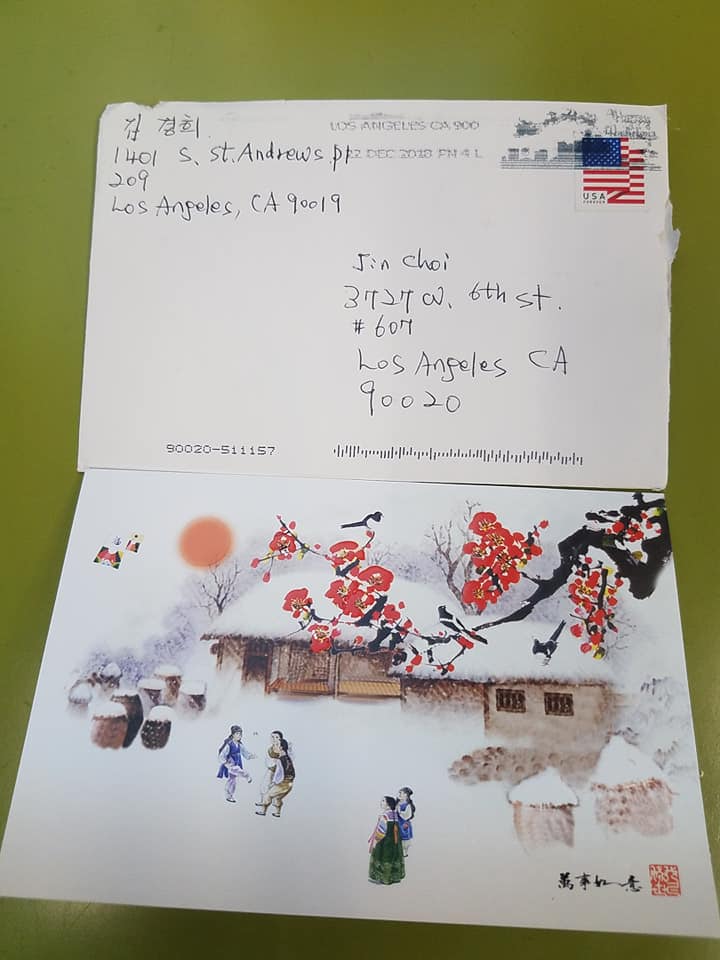 김 경희
1401 S. St. Andrews pl
209
Los Angeles, CA 90019
LOS ANGELES CA 900
22 DEC 2018 PM 4 L
USA
FOREVER
Jin Choi
3727 W. 6th St.
# 607
Los Angeles CA
90020
90020-511157
萬事如意